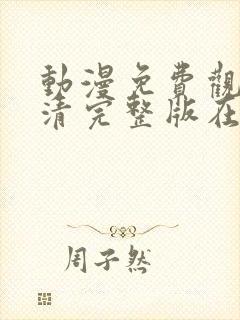 動漫免費觀
清完整版在
周子然